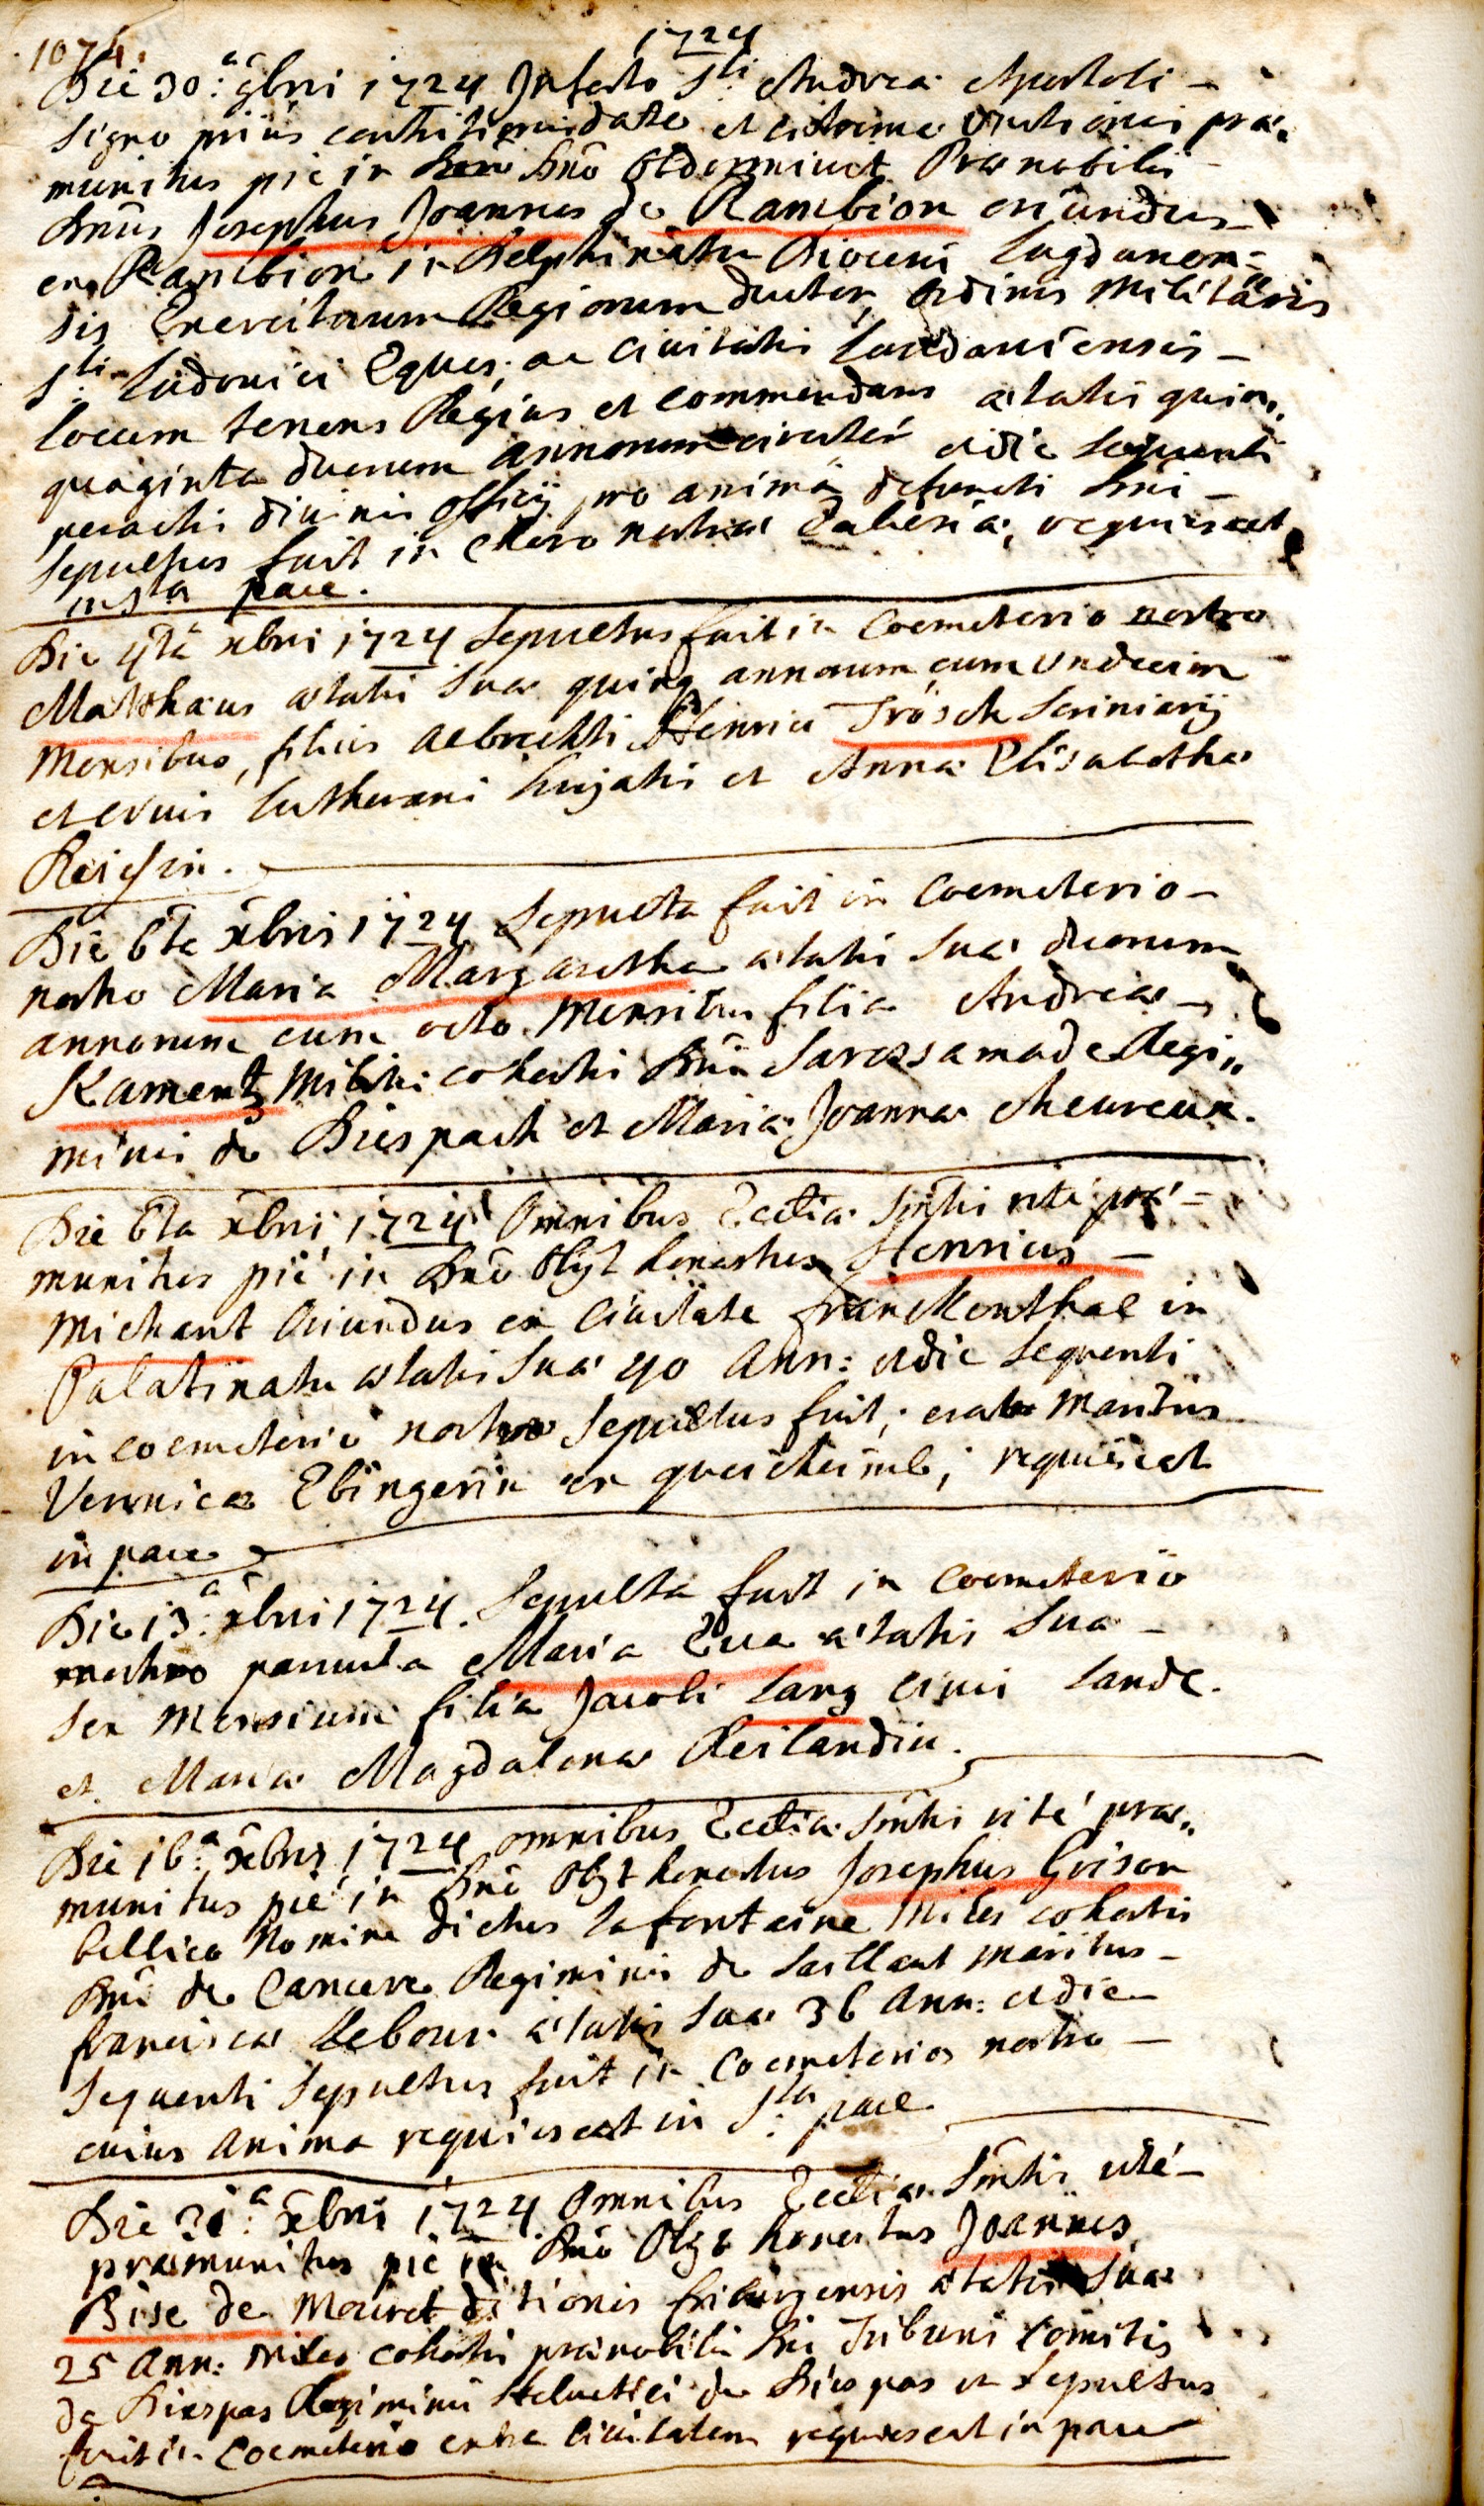 1074.
1724
Die 30.ª 9bri 1724 In festo S.ti Andreæ Apostoli –
signo prius contritionis dato et extremæ Unctionis præ„
munitus pie in Dnō obdormivit Prænobilis –
Dnūs Josephus Joannes de Rambion oriundus –
ex Rambion in Delphinatu Diocesis Lugdunen=
sis Exercituum Regiorum ductor, ordinis Militaris
S.ti Ludovici Eques, ac civitatis Landaviensis –
locum tenens Regius et commendans ætatis quin„
quaginta duorum annorum circiter et die sequenti
peractis divinis officijs pro anima defuncti Dni –
sepultus fuit in Choro nostræ Eclesiæ, requiescat
in Sta pace.
Die 4ta xbris 1724 Sepultus fuit in Coemeterio nostro
Matthæus ætatis suæ quinq annorum cum undecim
Mensibus, filius Albrechti Henrici Trösch Scriniarij
et civis lutherani hujatis et Annæ Elisabethæ
Die 6ta xbris 1724 Sepulta fuit in Coemeterio –
nostro Maria Margaretha ætatis suæ duorum
annorum cum octo Mensibus filia Andreæ –
Kamentz Militis cohortis Dni Regi„
minis de Diespach et Mariæ Joannæ Cheureux.
Die 6ta xbris 1724 Omnibus Ecclia Smtis rité præ –
munitus pié in Dnō obijt honestus Henricus –
Michant oriundus ex Civitate franckenthal in
Palatinatu ætatis suæ 40 Ann: et die sequenti
in coemeterio nostro Sepultus fuit; erat Maritus
Veronicæ Ebingerin ex queicheimb; requiescat
in pace
Die 13.ª xbris 1724. Sepulta fuit in Coemeterio
nostro parvula Maria Eva ætatis suæ –
sex Mensium filia Jacobi Lang civis Land.
et Mariæ Magdalenæ Reilandin.
Die 16.ª xbris 1724 omnibus Ecclia Smtis rité præ„
munitus pié in Dnō obijt honestus Josephus Grison
bellico Nomine dictus lafontaine Miles cohortis
Dni de Regiminis de Maritus –
franciscæ Lebour ætatis suæ 36 Ann: et die
sequenti Sepultus fuit in Coemeterio nostro –
cuius anima requiescat in S.ta pace
Die 31.ª xbris 1724 Omnibus Ecclia Smtis rité –
præmunitus pie in Dnō obijt honestus Joannes
Bise de Mouret ditionis friburgensis ætatis suæ
25 Ann: Miles cohortis prænobilis Dni Tribuni Comitis
de Diespas Regiminis Helvetici de Diespas et Sepultus
fuit in Coemeterio extra Civitatem requiescat in pace